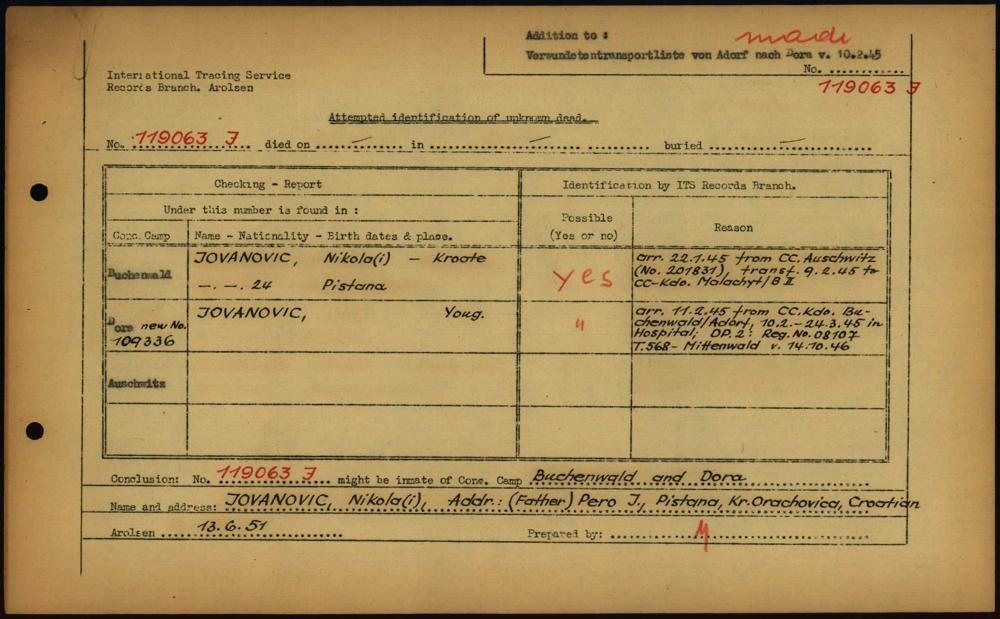 Addition to :
made
Verwundetentransportliste von Adorf nach Dora v. 10.2.45
No. ............
119063 J
International Tracing Service
Records Branch. Arolsen
Attempted identification of unknown dead.
No. 119063 J died on ....—.... in ....—.... buried ....—....
Checking - Report
Identification by ITS Records Branch.
Under this number is found in :
Possible
(Yes or no)
Reason
Conc. Camp
Name - Nationality - Birth dates & place.
Buchenwald
JOVANOVIC, Nikola(i) — Kroate
—.—. 24 Pistana
yes
arr. 22.1.45 from CC. Auschwitz
(No. 201831), transf. 9.2.45 to
CC-Kdo. Malachyt/B II
Dora new No.
109336
JOVANOVIC, Youg.
"
arr. 11.2.45 from CC. Kdo. Bu-
chenwald/Adorf, 10.2.-24.3.45 in
Hospital; DP.2: Reg. No. 08107
T.568- Mittenwald v. 14.10.46
Auschwitz
Conclusion: No. 119063 J might be inmate of Conc. Camp Buchenwald and Dora
Name and address: JOVANOVIC, Nikola(i), Addr.: (Father) Pero J., Pistana, Kr. Orachovica, Croatian
Arolsen 13.6.51 Prepared by: